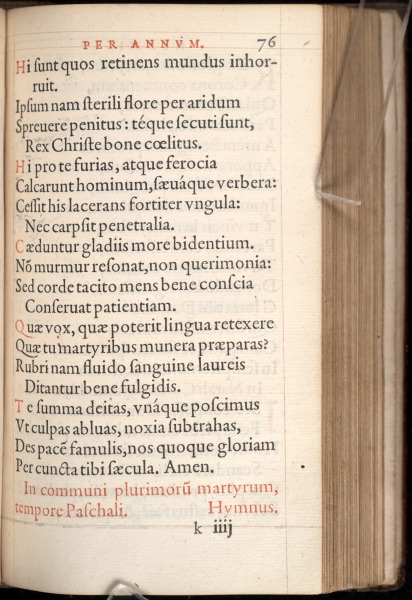 PER ANNVM. 76
Hi ſunt quos retinens mundus inhor-
ruit.
Ipſum nam ſterili flore per aridum
Spreuere penitus: téque ſecuti ſunt,
Rex Chriſte bone cœlitus.
Hi pro te furias, atque ferocia
Calcarunt hominum, ſæuáque verbera:
Ceſſit his lacerans fortiter vngula:
Nec carpſit penetralia.
Cæduntur gladiis more bidentium.
Nõ murmur reſonat, non querimonia:
Sed corde tacito mens bene conſcia
Conſeruat patientiam.
Quæ vox, quæ poterit lingua retexere
Quæ tu martyribus munera præparas?
Rubri nam fluido ſanguine laureis
Ditantur bene fulgidis.
Te ſumma deitas, vnáque poſcimus
Vt culpas abluas, noxia ſubtrahas,
Des pacẽ famulis, nos quoque gloriam
Per cuncta tibi ſæcula. Amen.
In communi plurimorũ martyrum,
tempore Paſchali. Hymnus.
k iiij